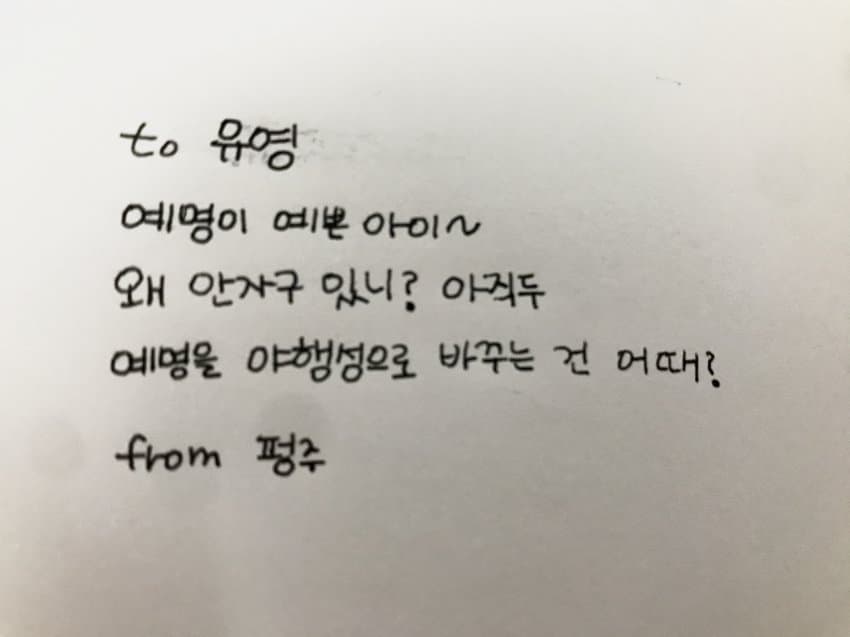 to 유영
예명이 예쁜 아이~
왜 안자구 있니? 아직두
예명을 야행성으로 바꾸는 건 어때?
from 펑주